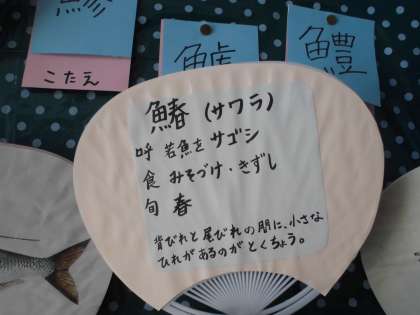 こたえ
鱧
鰆 (サワラ)
呼 若魚をサゴシ
食 みそづけ・きずし
旬 春
背びれと尾びれの間に、小さな
ひれがあるのがとくちょう。